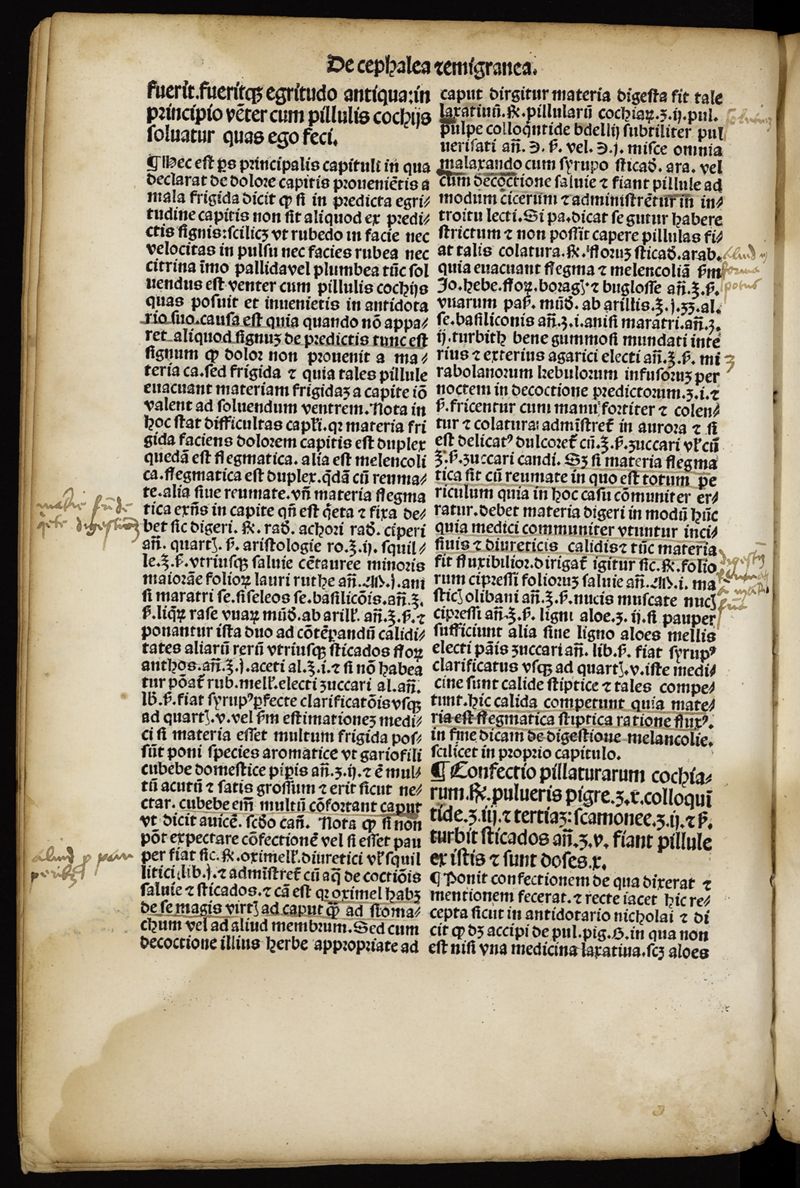 De cephalea ⁊ emigranea.
fuerit. fueritqꝫ egritudo antiqua: in
principio vēter cum pillulis cochijs
soluatur quas ego feci.
¶ Hec est ps principalis capituli in qua
declarat de dolore capitis proueniētis a
mala frigida dicit ꝙ si in predicta egri⸗
tudine capitis non sit aliquod ex predi⸗
ctis signis: scilicꝫ vt rubedo in facie nec
velocitas in pulsu nec facies rubea nec
citrina imo pallida vel plumbea tūc sol
uendus est venter cum pillulis cochijs
quas posuit et inuenietis in antidota
rio suo. causa est quia quando nō appa⸗
ret aliquod signuꝫ de predictis tunc est
signum ꝙ dolor non prouenit a ma⸗
teria ca. sed frigida ⁊ quia tales pillule
euacuant materiam frigidaꝫ a capite iō
valent ad soluendum ventrem. Nota in
hoc stat difficultas capli. qꝛ materia fri
gida faciens dolorem capitis est duplex
quedā est flegmatica. alia est melencoli
ca. flegmatica est duplex. qdā cū reuma⸗
te. alia siue reumate. vn̄ materia flegma
tica exn̄s in capite qn̄ est q̄ta ⁊ fixa de⸗
bet sic digeri. ℞. rad. achori rad. ciperi
an̄. quartꝭ. ꝭ. aristologie ro. ʒ.ij. squil⸗
le. ʒ. ꝭ. vtriusqꝫ saluie cētauree minoris
maioraāe folioꝝ lauri ruthe an̄. M.j. ani
si maratri se. siseleos se. basilicōis. an̄. ʒ.
ꝭ. liqꝝ rase vuaꝝ mūd. ab arill. an̄. ʒ. ꝭ. ⁊
ponantur ista duo ad cōtēperandū calidi⸗
tates aliarū rerū vtriusqꝫ sticados floꝝ
anthos. an̄. ʒ.j. aceti al. ʒ.i. ⁊ si nō habea
tur pōat rub. mell. electi zuccari al. an̄.
lb. ꝭ. fiat syrupꝰ pfecte clarificatōis vsqꝫ
ad quartꝭ. v. vel ßm estimationeꝫ medi⸗
ci si materia esset multum frigida pos⸗
sūt poni species aromatice vt gariofili
cubebe domestice pipis an̄. ʒ.ij. ⁊ ē mul⸗
tū acutū ⁊ satis grossum ⁊ erit sicut ne⸗
ctar. cubebe eim̄ multū cōfortant caput
vt dicit auicē. scd̄o can̄. Nota ꝙ si non
pōt expectare cōfectionē vel si esset pau
per fiat sic. ℞. oximell. diuretici vl squil
litici lib.j. ⁊ admistret cū aq̄ de coctiōis
saluie ⁊ sticados. ⁊ cā est qꝛ oximel habꝫ
de se magis virtꝭ ad caput ꝙ̄ ad stoma⸗
chum vel ad aliud membrum. Sed cum
decoctione illius herbe appropriate ad
caput dirgitur materia digesta fit tale
laxatiuū. ℞. pillularū cochiaꝝ. ʒ.ij. pul.
pulpe colloquntide bdellij subtiliter pul
uerisati an̄. ℈. ꝭ. vel. ℈.j. misce omnia
malaxando cum syrupo sticad. ara. vel
cum decoctione saluie ⁊ fiant pillule ad
modum cicerum ⁊ administrētur in in⸗
troitu lecti. Si pa. dicat se gutur habere
strictum ⁊ non possit capere pillulas fi⸗
at talis colatura. ℞. floruꝫ sticad. arab.
quia euacuant flegma ⁊ melencoliā ßm
Jo. hebe. floꝝ. boragꝭ ⁊ buglosse an̄. ʒ. ꝭ.
vuarum pas. mūd. ab arillis. ʒ.j. ʒʒ. al.
se. basiliconis an̄. ʒ.i. anisi maratri. an̄. ʒ.
ij. turbith bene gummosi mundati inte
rius ⁊ exterius agarici electi an̄. ʒ. ꝭ. mi
rabolanorum kebulorum infusoruꝫ per
noctem in decoctione predictorum. ʒ.i. ⁊
ꝭ. fricentur cum manu fortiter ⁊ colen⸗
tur ⁊ colatura: admistret in aurora ⁊ si
est delicatꝰ dulcoret cū. ʒ. ꝭ. zuccari vl cū
ʒ. ꝭ. zuccari candi. Sꝫ si materia flegma
tica sit cū reumate in quo est totum pe
riculum quia in hoc casu cōmuniter er⸗
ratur. debet materia digeri in modū hūc
quia medici communiter vtuntur inci⸗
siuis ⁊ diureticis calidis ⁊ tūc materia
fit fluxibilior. dirigat igitur sic. ℞. folio
rum cipressi folioruꝫ saluie an̄. M.i. ma
sticꝭ olibani an̄. ʒ. ꝭ. nucis muscate nucꝭ
cipressi an̄. ʒ. ꝭ. ligni aloe. ʒ.ij. si pauper
sufficiunt alia sine ligno aloes mellis
electi pāis zuccari an̄. lib. ꝭ. fiat syrupꝰ
clarificatus vsqꝫ ad quartꝭ. v. iste medi⸗
cine sunt calide stiptice ⁊ tales compe⸗
tunt. hic calida competunt quia mate⸗
ria est flegmatica stiptica ratione fluxꝰ.
in fine dicam de digestione melancolie.
scilicet in proprio capitulo.
¶ Confectio pillaturarum cochia⸗
rum. ℞. pulueris pigre. ʒ.x. colloqui
tide. ʒ.iij. ⁊ tertiaꝫ: scamonee. ʒ.ij. ⁊ ꝭ.
turbit sticados an̄. ʒ.v. fiant pillule
ex istis ⁊ sunt doses. x.
¶ Ponit confectionem de qua dixerat ⁊
mentionem fecerat. ⁊ recte iacet hic re⸗
cepta sicut in antidotario nicholai ⁊ di
cit ꝙ dꝫ accipi de pul. pig. G. in qua non
est nisi vna medicina laxatiua. scꝫ aloes